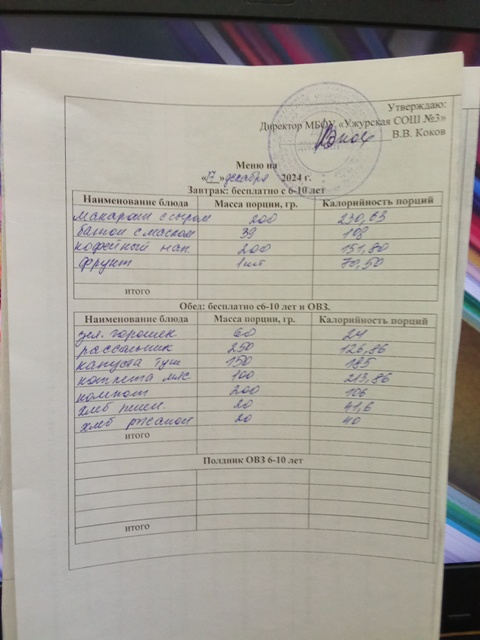 Утверждаю:
Директор МБОУ «Ужурская СОШ №3»
В.В. Коков
Меню на
«17» декабря 2024 г.
Завтрак: бесплатно с 6-10 лет
Наименование блюда Масса порции, гр. Калорийность порций
макароны с сыром 200 230,63
батон с маслом 39 109
кофейный нап. 200 151,80
фрукт 1 шт 70,50
итого
Обед: бесплатно с6-10 лет и ОВЗ.
Наименование блюда Масса порции, гр. Калорийность порций
зел. горошек 60 24
рассольник 250 126,86
капуста туш 150 185
котлета мяс 100 213,86
компот 200 106
хлеб пшен. 20 41,6
хлеб ржаной 20 40
итого
Полдник ОВЗ 6-10 лет
итого